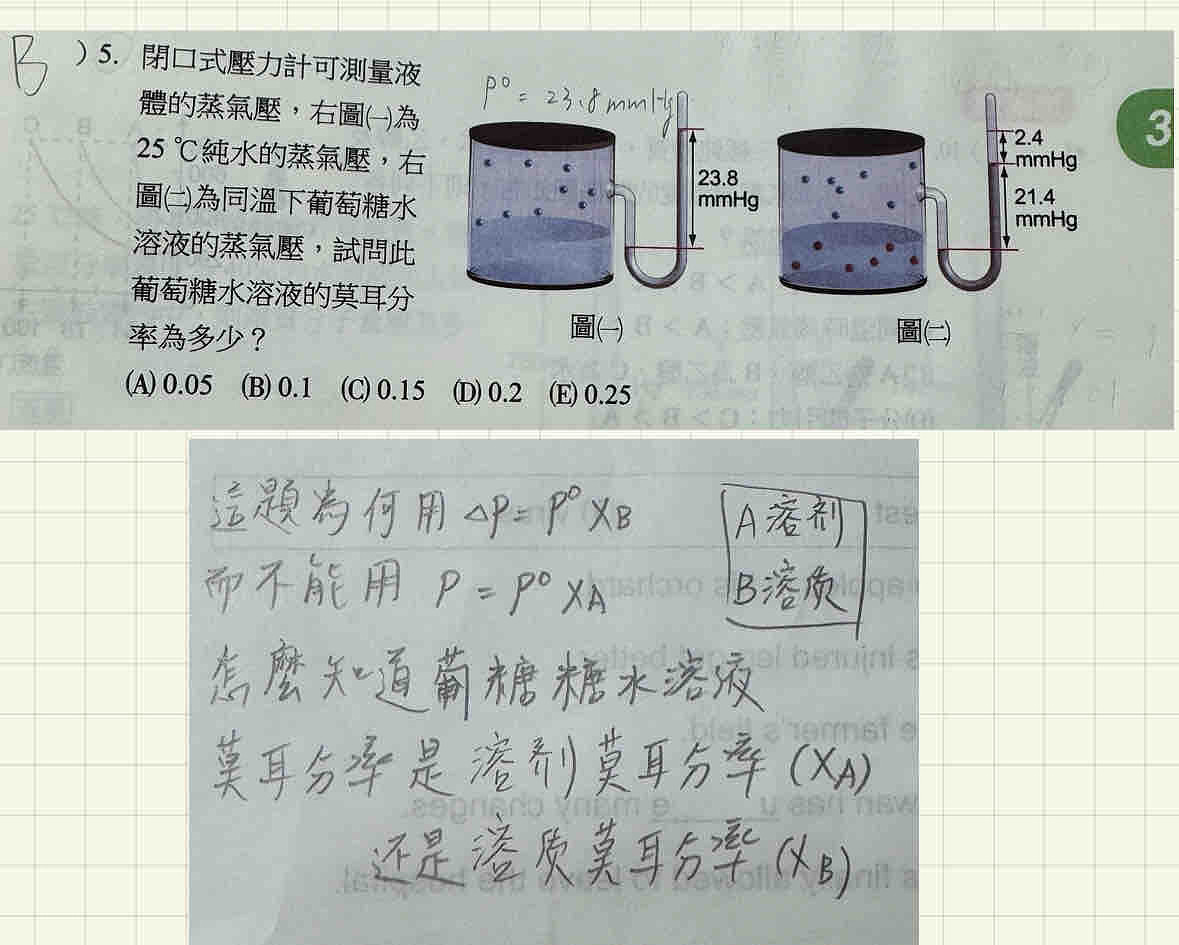 B )5. 閉口式壓力計可測量液
體的蒸氣壓，右圖㈠為
25 ℃純水的蒸氣壓，右
圖㈡為同溫下葡萄糖水
溶液的蒸氣壓，試問此
葡萄糖水溶液的莫耳分
率為多少？
(A) 0.05 (B) 0.1 (C) 0.15 (D) 0.2 (E) 0.25
P⁰ = 23.8 mmHg
23.8
mmHg
圖㈠
2.4
mmHg
21.4
mmHg
圖㈡
3
這題為何用 △P = P⁰ XB
而不能用 P = P⁰ XA
A 溶剂
B 溶质
怎麼知道葡糖糖水溶液
莫耳分率是溶剂莫耳分率 (XA)
还是溶质莫耳分率 (XB)